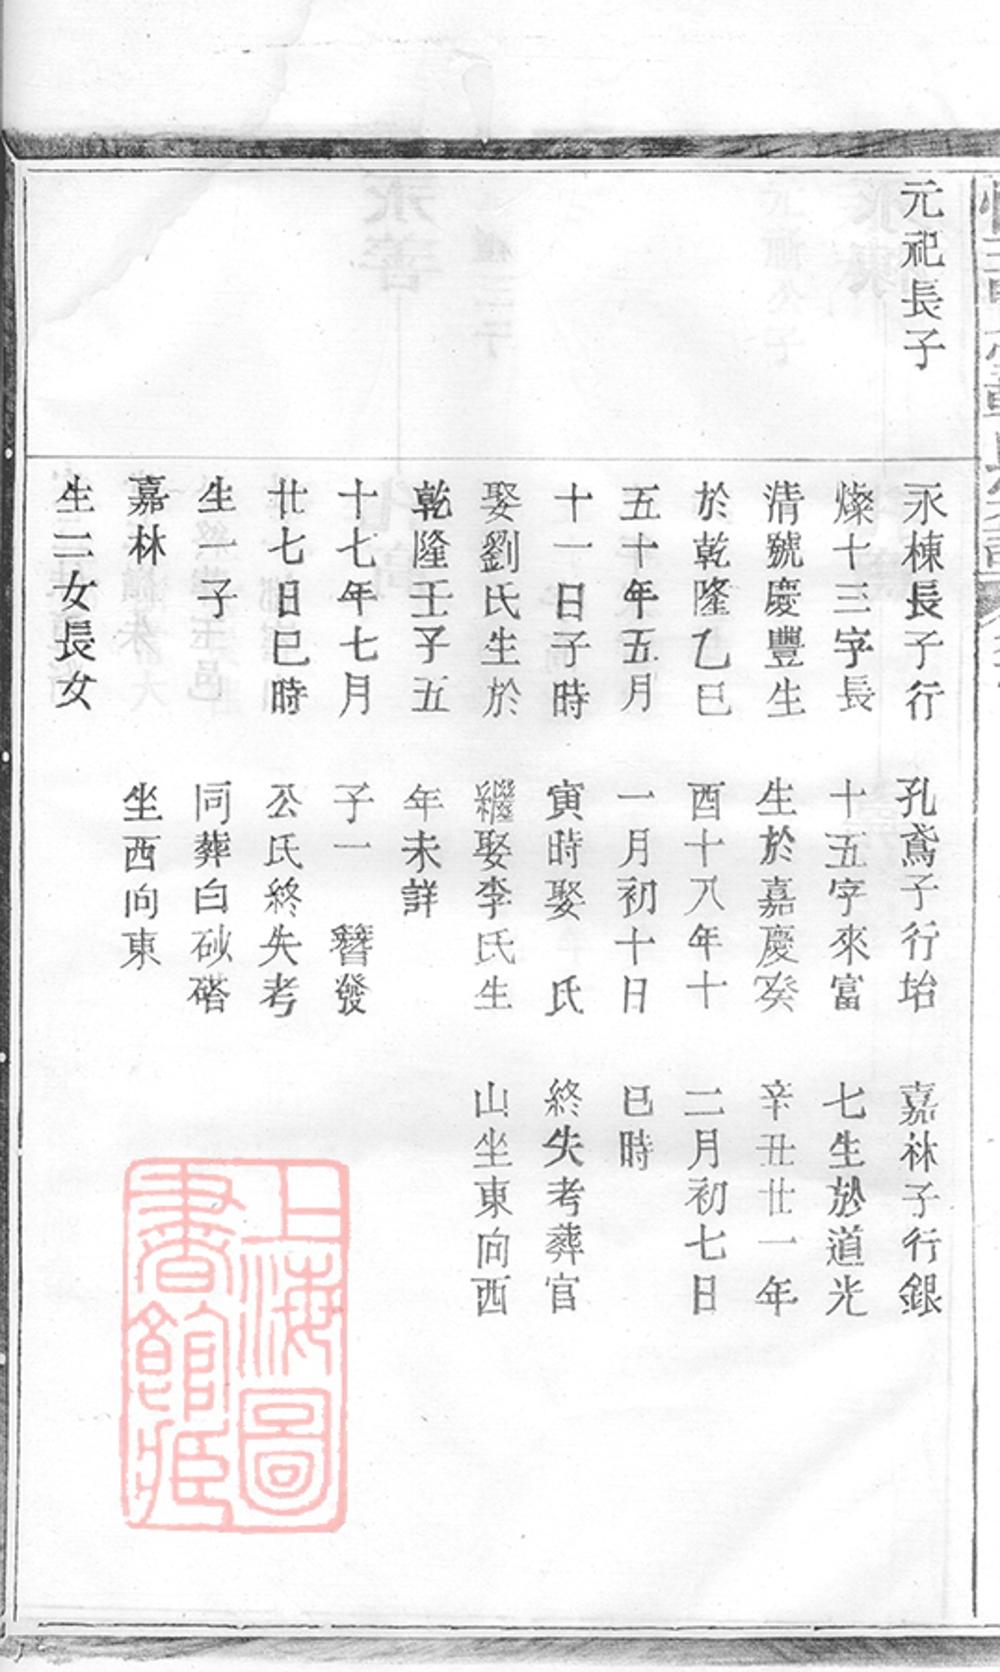 元祀長子
永棟長子行
燦十三字長
清號慶豐生
於乾隆乙巳
五十年五月
十一日子時
娶劉氏生於
乾隆壬子五
十七年七月
廿七日巳時
生一子
嘉林
生二女長女
孔鳶子行坮
十五字來富
生於嘉慶癸
酉十八年十
一月初十日
寅時娶 氏
繼娶李氏生
年未詳
子一 簪發
公氏終失考
同葬白砂碏
坐西向東
嘉林子行銀
七生於道光
辛丑廿一年
二月初七日
巳時
終失考葬官
山坐東向西
上海圖
書館藏